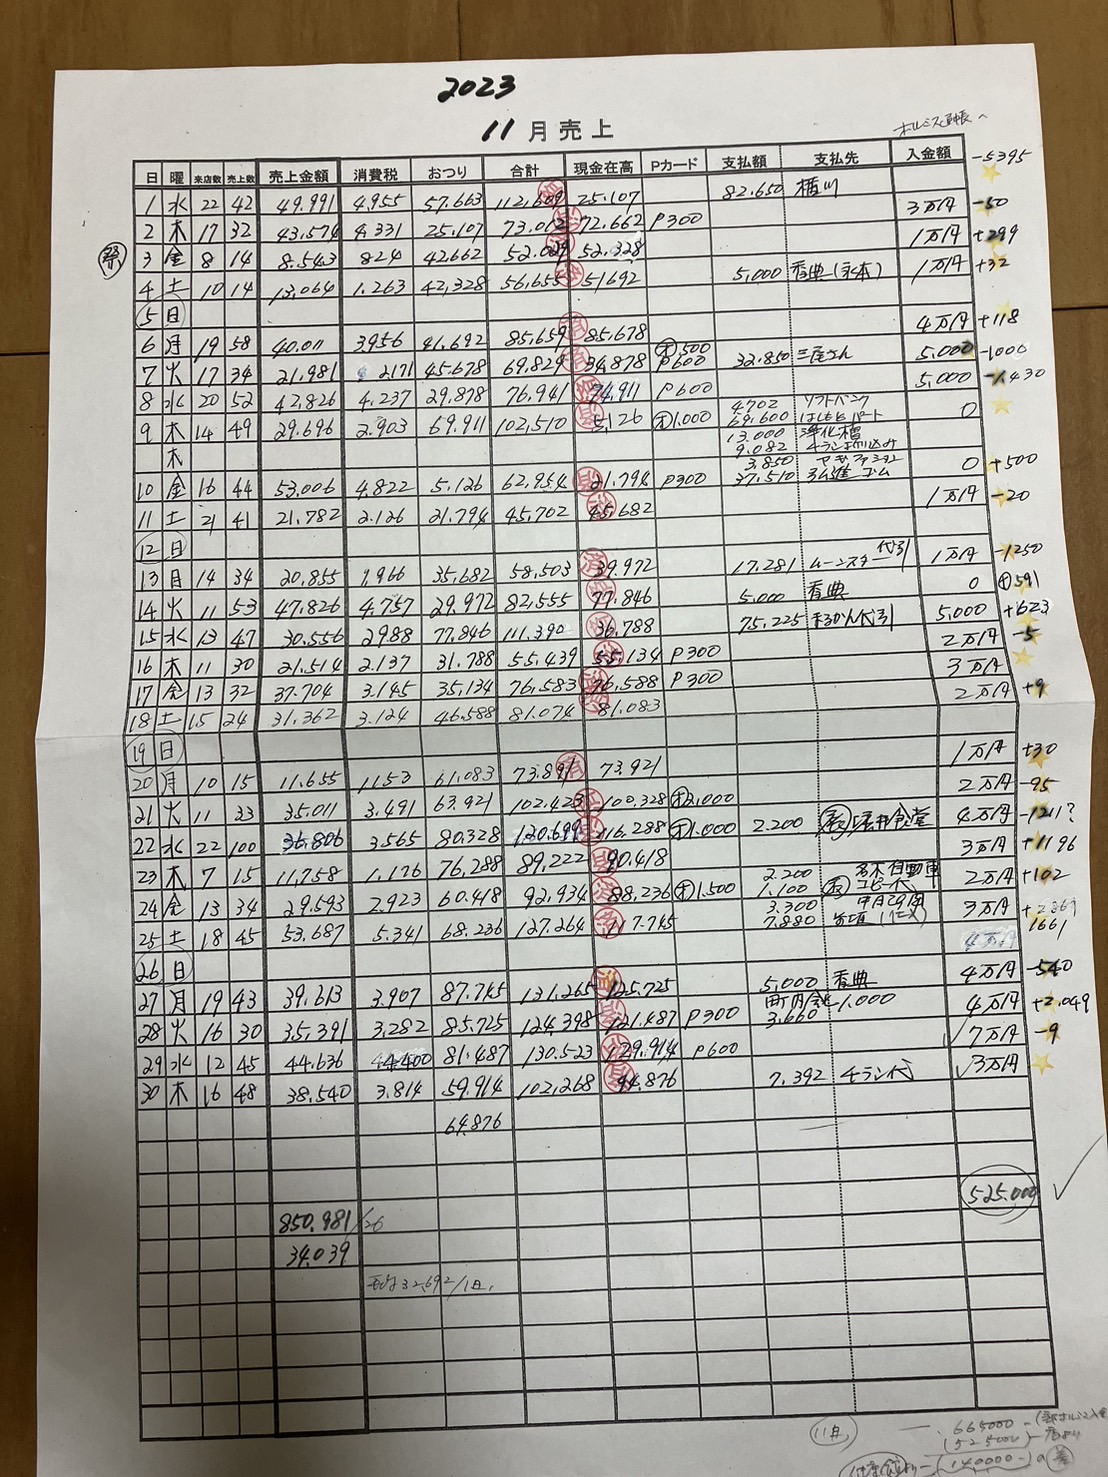 2023
11月売上
日 曜 来店数 売上数 売上金額 消費税 おつり 合計 現金在高 Pカード 支払額 支払先 入金額 -5395
1 水 22 42 49.991 4.955 57.663 112.609 25.107 82.650 3万円 -50
2 木 17 32 43.574 4.331 25.107 73.012 72.662 P300 1万円 +299
祭 3 金 8 14 8.543 824 42.662 52.029 52.328 1万円 +32
4 土 10 14 13.064 1.263 42,328 56,655 51692 5,000 香典(永本)
5 日 4万円 +118
6 月 19 58 40.011 3.956 41.692 85,659 85.678 オ500 5.000 -1000
7 火 17 34 21,981 2.171 45.678 69,829 34,878 P600 32.850 三尾さん 5,000 -1430
8 水 20 52 42,826 4.237 29.878 76,941 74,911 P600 4.702 ソフトバンク 0
9 木 14 49 29.696 2.903 69.911 102,510 5,126 オ1.000 69.600 はしもとパート
木 13.000 浄化槽
9.082 チラシ折り込み
3.850 0 +500
10 金 16 44 53,006 4.822 5.126 62,954 21.794 P300 37.510 弘進ゴム 1万円 -20
11 土 21 41 21,782 2.126 21,794 45,702 45,682
12 日 1万円 -1250
13 月 14 34 20,855 1,966 35,682 58,503 39.972 17.281 ムーンスター代引 0 オ591
14 火 11 53 47,826 4.757 29.972 82,555 77.846 5.000 香典 5,000 +623
15 水 13 47 30.556 2.988 77,846 111.390 36.788 75,225 代引 2万円 -5
16 木 11 30 21.514 2.137 31.788 55.439 55,134 P300 3万円
17 金 13 32 37.704 3.145 35,134 76,583 76,588 P300 2万円 +9
18 土 15 24 31,362 3.124 46.588 81.074 81.083
19 日 1万円 +30
20 月 10 15 11.655 1153 61.083 73.891 73.921 2万円 -95
21 火 11 33 35.011 3.491 63.921 102.423 100.328 オ2,000 4万円 -1211?
22 水 22 100 36,806 3.565 80.328 120.699 116.288 オ1.000 2.200 3万円 +1196
23 木 7 15 11,758 1.176 76,288 89,222 90.418 2.200 自動車 2万円 +102
24 金 13 34 29.593 2.923 60.418 92,934 88,236 オ1.500 1.100 コピー代 3万円
3.300
25 土 18 45 53.687 5.341 68.236 127.264 117.745 7.880 4万円 1661
26 日 4万円 -540
27 月 19 43 39.613 3.907 87.745 131,265 125.725 5,000 香典 4万円 +2.049
町内会 1.000
28 火 16 30 35,391 3.282 85.725 124,398 121.487 P300 3.660 7万円 -9
29 水 12 45 44.636 4400 81.487 130.523 129.914 P600 3万円
30 木 16 48 38.540 3.814 59.914 102,268 94.876 7,392 チラシ代
64.876
525.000
850.981/26
34.039
32,692/1日.
11月
665000-
(525000)-
(140000-)の差